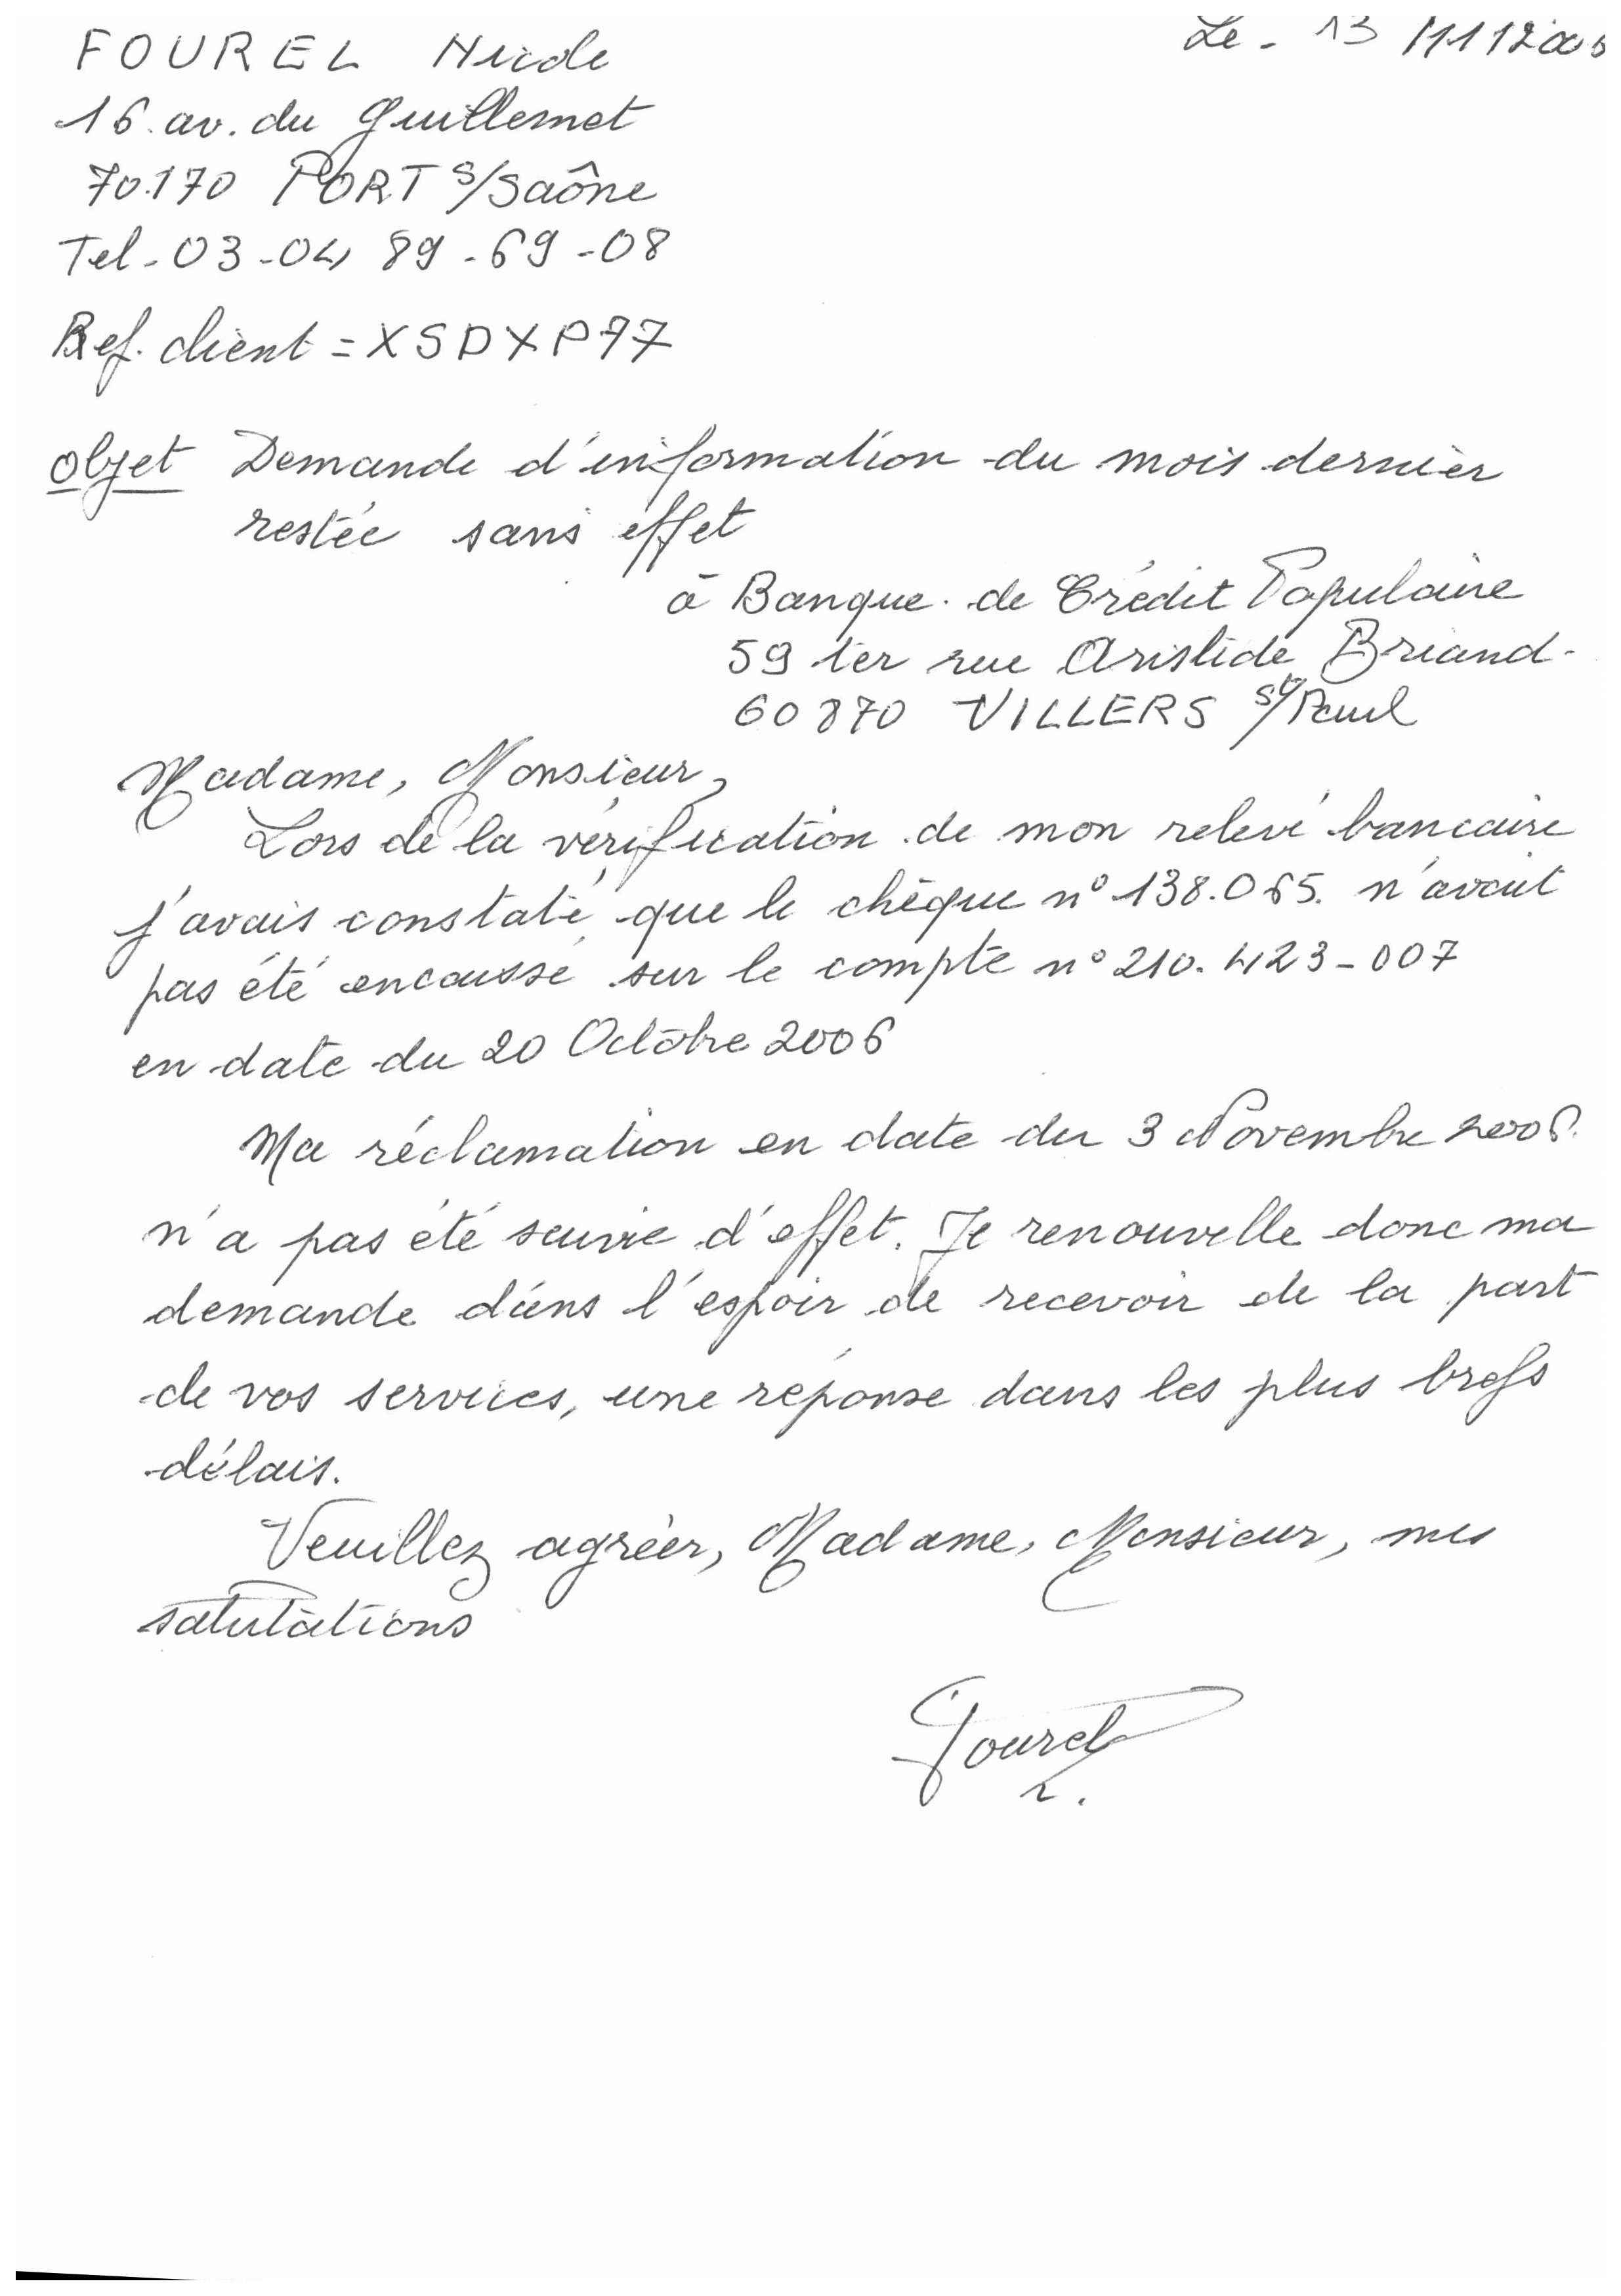 FOUREL Nicole
Le - 13/11/2006
16 av. du Guillemet
70170 PORT s/Saône
Tel - 03 - 04 89 - 69 - 08
Ref. client = XSDXP77
Objet Demande d'information du mois dernier
restée sans effet
à Banque de Crédit Populaire
59 ter rue Aristide Briand
60870 VILLERS St/Paul
Madame, Monsieur,
Lors de la vérification de mon relevé bancaire
j'avais constaté que le chèque n° 138.065. n'avait
pas été encaissé sur le compte n° 210.423-007
en date du 20 Octobre 2006
Ma réclamation en date du 3 Novembre 2006.
n'a pas été suivie d'effet. Je renouvelle donc ma
demande dans l'espoir de recevoir de la part
de vos services, une réponse dans les plus brefs
délais.
Veuillez agréer, Madame, Monsieur, mes
salutations
Fourel